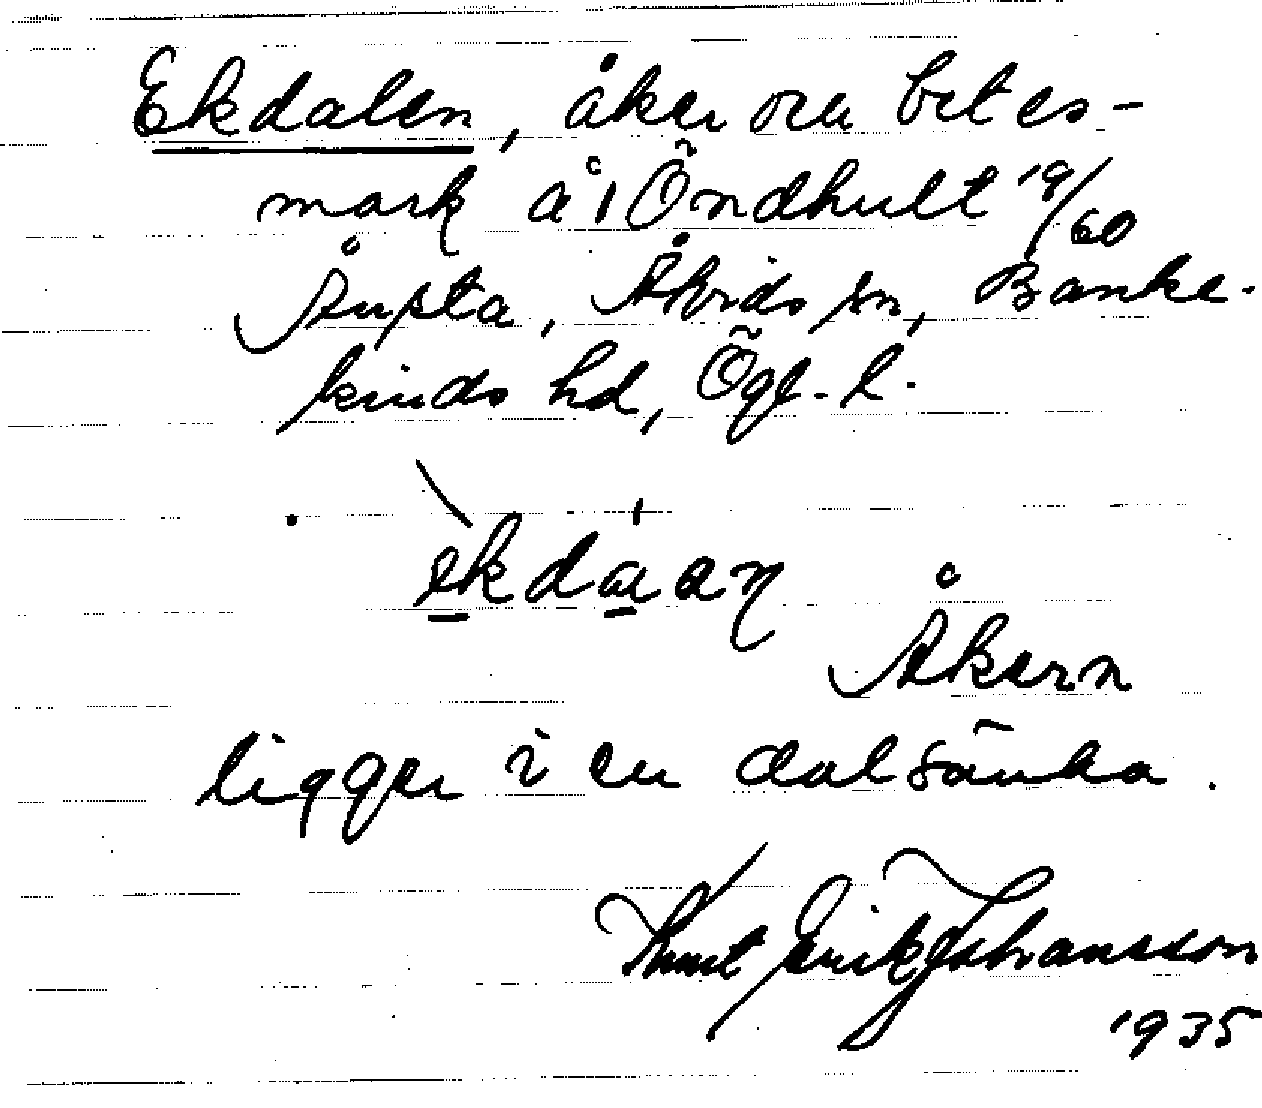 Ekdalen, åker och betes-
mark å 1 Öndhult 19/60
Åtvids sn, Banke-
kinds hd, Ögl. l.
ekdaan
Åkern
ligger i en dalsänka.
Knut Erik Johansson
1935